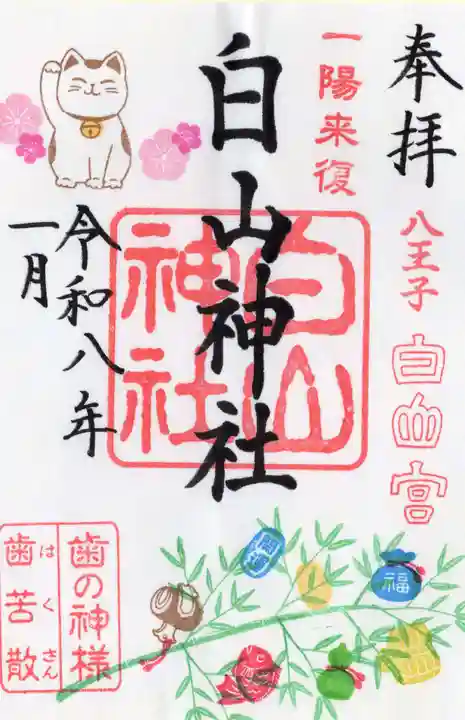 奉拝
八王子 白山宮
一陽来復
白山神社
白山
神社
令和八年
一月
歯の神様
歯苦散
はくさん
福